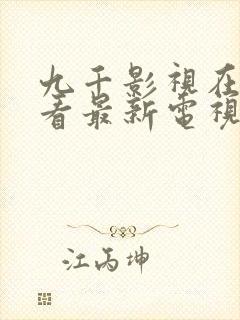 九千影視在
看最新電視
江丙坤